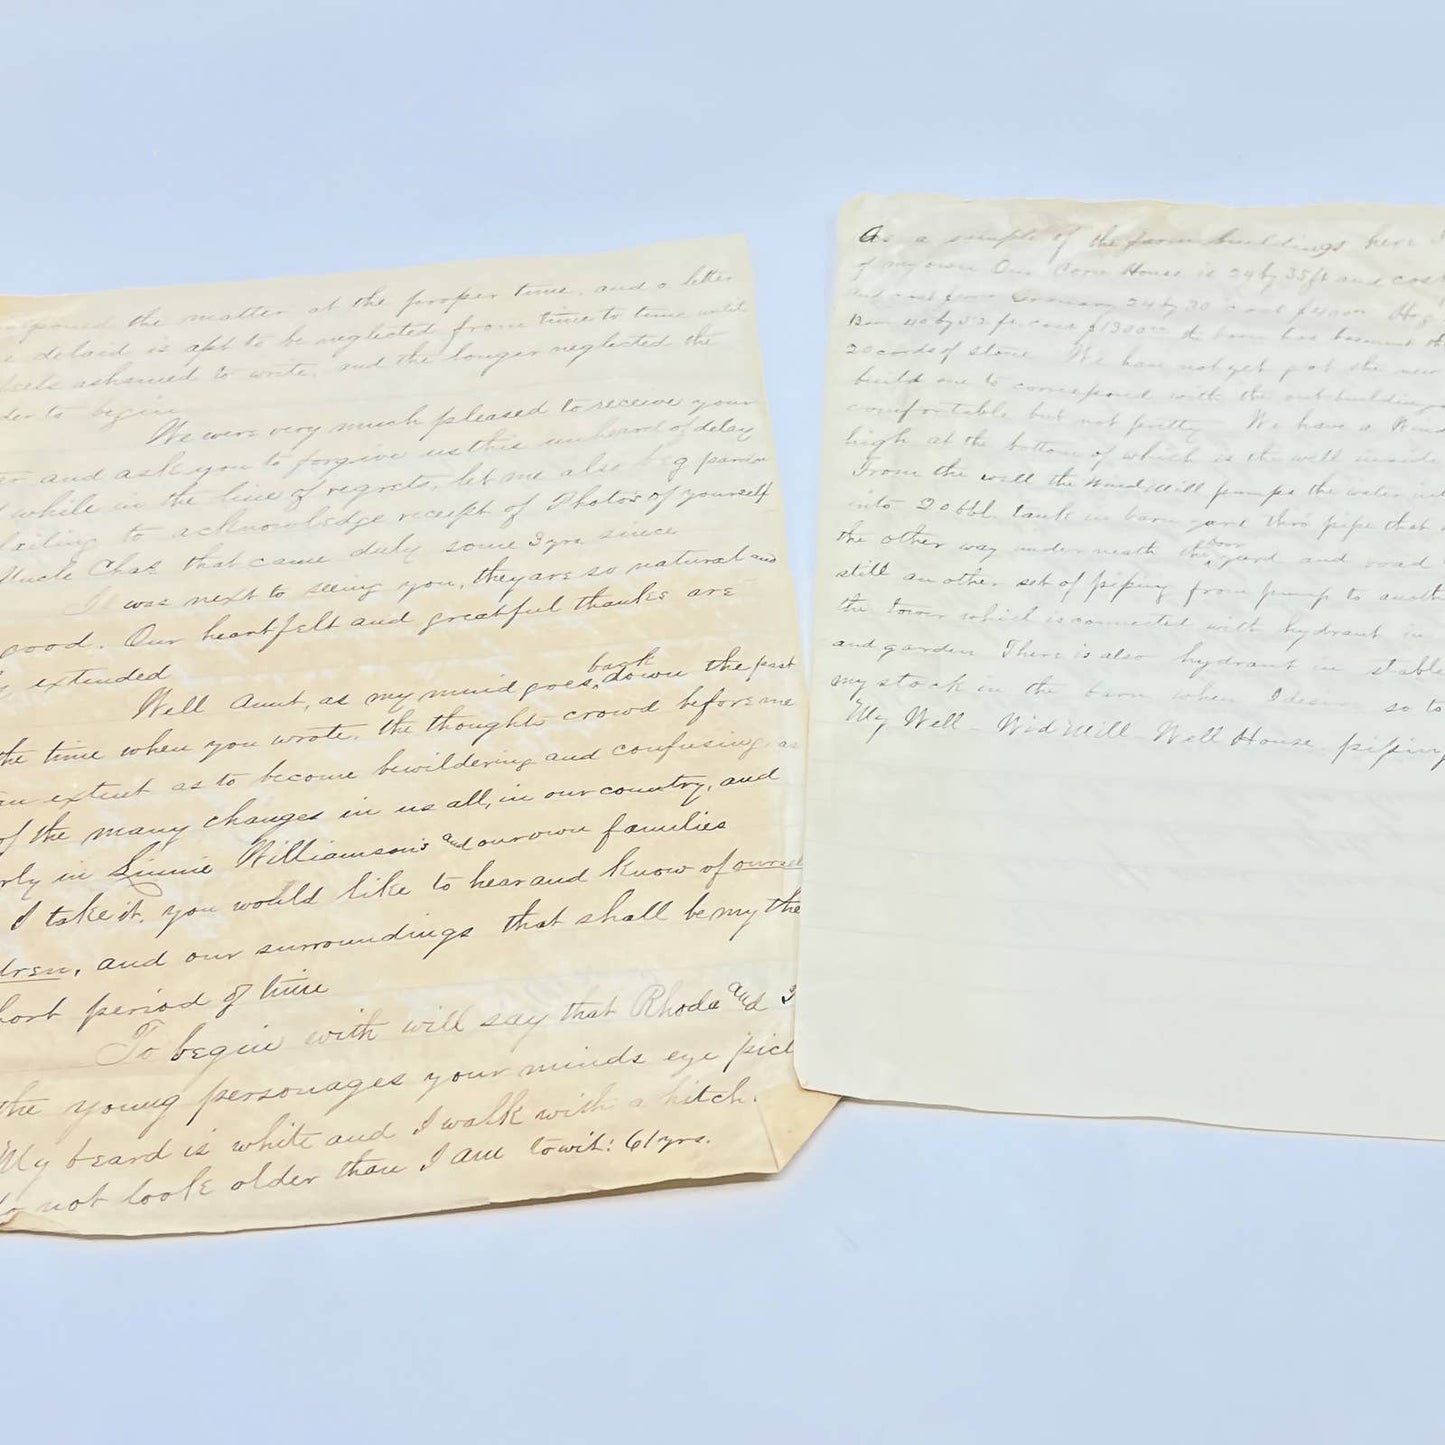 the matter at the proper time, and a letter
delaid is apt to be neglected from time to time until
feels ashamed to write, and the longer neglected the
to begin
We were very much pleased to receive your
and ask you to forgive us this unheard of delay
while in the line of regrets, let me also beg pardon
to acknowledge receipt of Photos of yourself
Uncle Chas that came duly some 3 yrs since
It was next to seeing you, they are so natural and
good. Our heartfelt and greatful thanks are
extended
Well Aunt, as my mind goes back down the past
the time when you wrote, the thoughts crowd before me
an extent as to become bewildering and confusing, as
of the many changes in us all, in our country, and
in Linnie Williamson's and our own families
I take it, you would like to hear and know of
dren, and our surroundings that shall be my the
hort period of time
To begin with will say that Rhoda and I
the young personages your minds eye pict
My beard is white and I walk with a hitch.
do not look older than I am towit: 61 yrs.
As a sample of the farm buildings here I
of my own Our Corn House is 24 by 35 ft and cost
and cost Granary 24 by 30 cost $400 Hog
Barn 40 by 52 ft. cost $1300 the barn has basement
20 cords of stone We have not yet got the new
build one to correspond with the out buildings
comfortable but not pretty We have a Wind
high at the bottom of which is the well inside
From the well the Wind Mill pumps the water
into 20 bbl. tank in barn yard thro pipe that
the other way under neath the door yard and road
still an other set of piping from pump to anoth
the tower which is connected with hydrant in
and garden There is also hydrant in stable
my stock in the barn when I desire so to
My Well - Wid Mill - Well House, piping